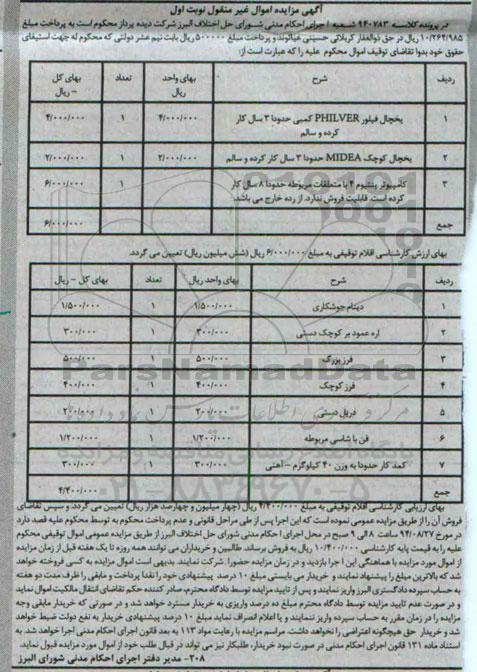 آگهی مزایده اموال غیر منقول نوبت اول
در پرونده کلاسه ۹۴۰۷۸۳ شعبه ۱ اجرای احکام مدنی شورای حل اختلاف البرز شرکت دیده پرداز محکوم است به پرداخت مبلغ
۱۰/۲۶۴/۹۸۵ ریال در حق ذوالفقار کربلائی حسینی غیاثوند و پرداخت مبلغ ۵۰۰۰۰۰ ریال بابت نیم عشر دولتی که محکوم له جهت استیفای
حقوق خود بدوا تقاضای توقیف اموال محکوم علیه را که عبارت است از:
ردیف شرح تعداد بهای واحد ریال بهای کل – ریال
۱ یخچال فیلور PHILVER کمبی حدودا ۳ سال کار کرده و سالم ۱ ۴/۰۰۰/۰۰۰ ۴/۰۰۰/۰۰۰
۲ یخچال کوچک MIDEA حدودا ۳ سال کار کرده و سالم ۱ ۲/۰۰۰/۰۰۰ ۲/۰۰۰/۰۰۰
۳ کامپیوتر پنتیوم ۴ با متعلقات مربوطه حدودا ۸ سال کار کرده است. قابلیت فروش ندارد. از رده خارج می باشد. ۱ ۶/۰۰۰/۰۰۰
جمع ۶/۰۰۰/۰۰۰
بهای ارزش کارشناسی اقلام توقیفی به مبلغ ۶/۰۰۰/۰۰۰ ریال (شش میلیون ریال) تعیین می گردد.
ردیف شرح بهای واحد ریال تعداد بهای کل – ریال
۱ دینام جوشکاری ۱/۵۰۰/۰۰۰ ۱ ۱/۵۰۰/۰۰۰
۲ اره عمود بر کوچک دستی ۳۰۰/۰۰۰ ۱ ۳۰۰/۰۰۰
۳ فرز بزرگ ۵۰۰/۰۰۰ ۱ ۵۰۰/۰۰۰
۴ فرز کوچک ۴۰۰/۰۰۰ ۱ ۴۰۰/۰۰۰
۵ دریل دستی ۲۰۰/۰۰۰ ۱ ۲۰۰/۰۰۰
۶ فن با شاسی مربوطه ۱/۲۰۰/۰۰۰ ۱ ۱/۲۰۰/۰۰۰
۷ کمد کار حدودا به وزن ۴۰ کیلوگرم – آهنی ۳۰۰/۰۰۰ ۱ ۳۰۰/۰۰۰
جمع ۴/۴۰۰/۰۰۰
بهای ارزیابی کارشناسی اقلام توقیفی به مبلغ ۴/۴۰۰/۰۰۰ ریال (چهار میلیون و چهارصد هزار ریال) تعیین می گردد و سپس تقاضای
فروش آن را از طریق مزایده عمومی نموده است که این اجرا پس از طی مراحل قانونی و عدم پرداخت محکوم به توسط محکوم علیه قصد دارد
در مورخ ۹۴/۰۸/۲۷ ساعت ۸ الی ۹ صبح در محل اجرای احکام مدنی شورای حل اختلاف البرز از طریق مزایده عمومی اموال توقیفی محکوم
علیه را به قیمت پایه کارشناسی ۱۰/۴۰۰/۰۰۰ ریال به فروش برساند. طالبین و خریداران می توانند همه روزه تا یک هفته قبل از زمان مزایده
از اموال مورد مزایده با هماهنگی این اجرا بازدید و در زمان مزایده حضورا شرکت نمایند. بدیهی است اموال مزایده به کسی فروخته خواهد
شد که بالاترین مبلغ را پیشنهاد نمایند و خریدار می بایستی مبلغ ۱۰ درصد پیشنهادی خود را نقدا پرداخت و مابقی را ظرف مدت دو هفته
به حساب سپرده دادگستری البرز واریز نمایند و پس از تایید مزایده توسط دادگاه محترم، صادر کننده حکم تقاضای انتقال مالکیت اموال نماید
و در صورت عدم تایید مزایده توسط دادگاه محترم مبلغ ده درصد واریزی به خریدار مسترد خواهد شد و در صورتی که خریدار مابقی وجه
مزایده را در زمان مقرر به حساب سپرده واریز ننمایند و یا اعلام انصراف نماید مبلغ ۱۰ درصد پیشنهادی خریدار به نفع دولت ضبط خواهد
شد و خریدار حق هیچگونه اعتراضی را نخواهد داشت. مراسم مزایده با رعایت مواد ۱۱۳ به بعد قانون اجرای احکام مدنی اجرا خواهد شد. به
استناد ماده ۱۳۱ قانون اجرای احکام مدنی در صورت نبود خریدار، طلبکار نیز می تواند در قبال طلب خود از اموال مورد مزایده قبول نماید.
۲۰۸- مدیر دفتر اجرای احکام مدنی شورای البرز
ParsNamadData
۰۲۱-۸۸۳۴۹۶۷۰-۵